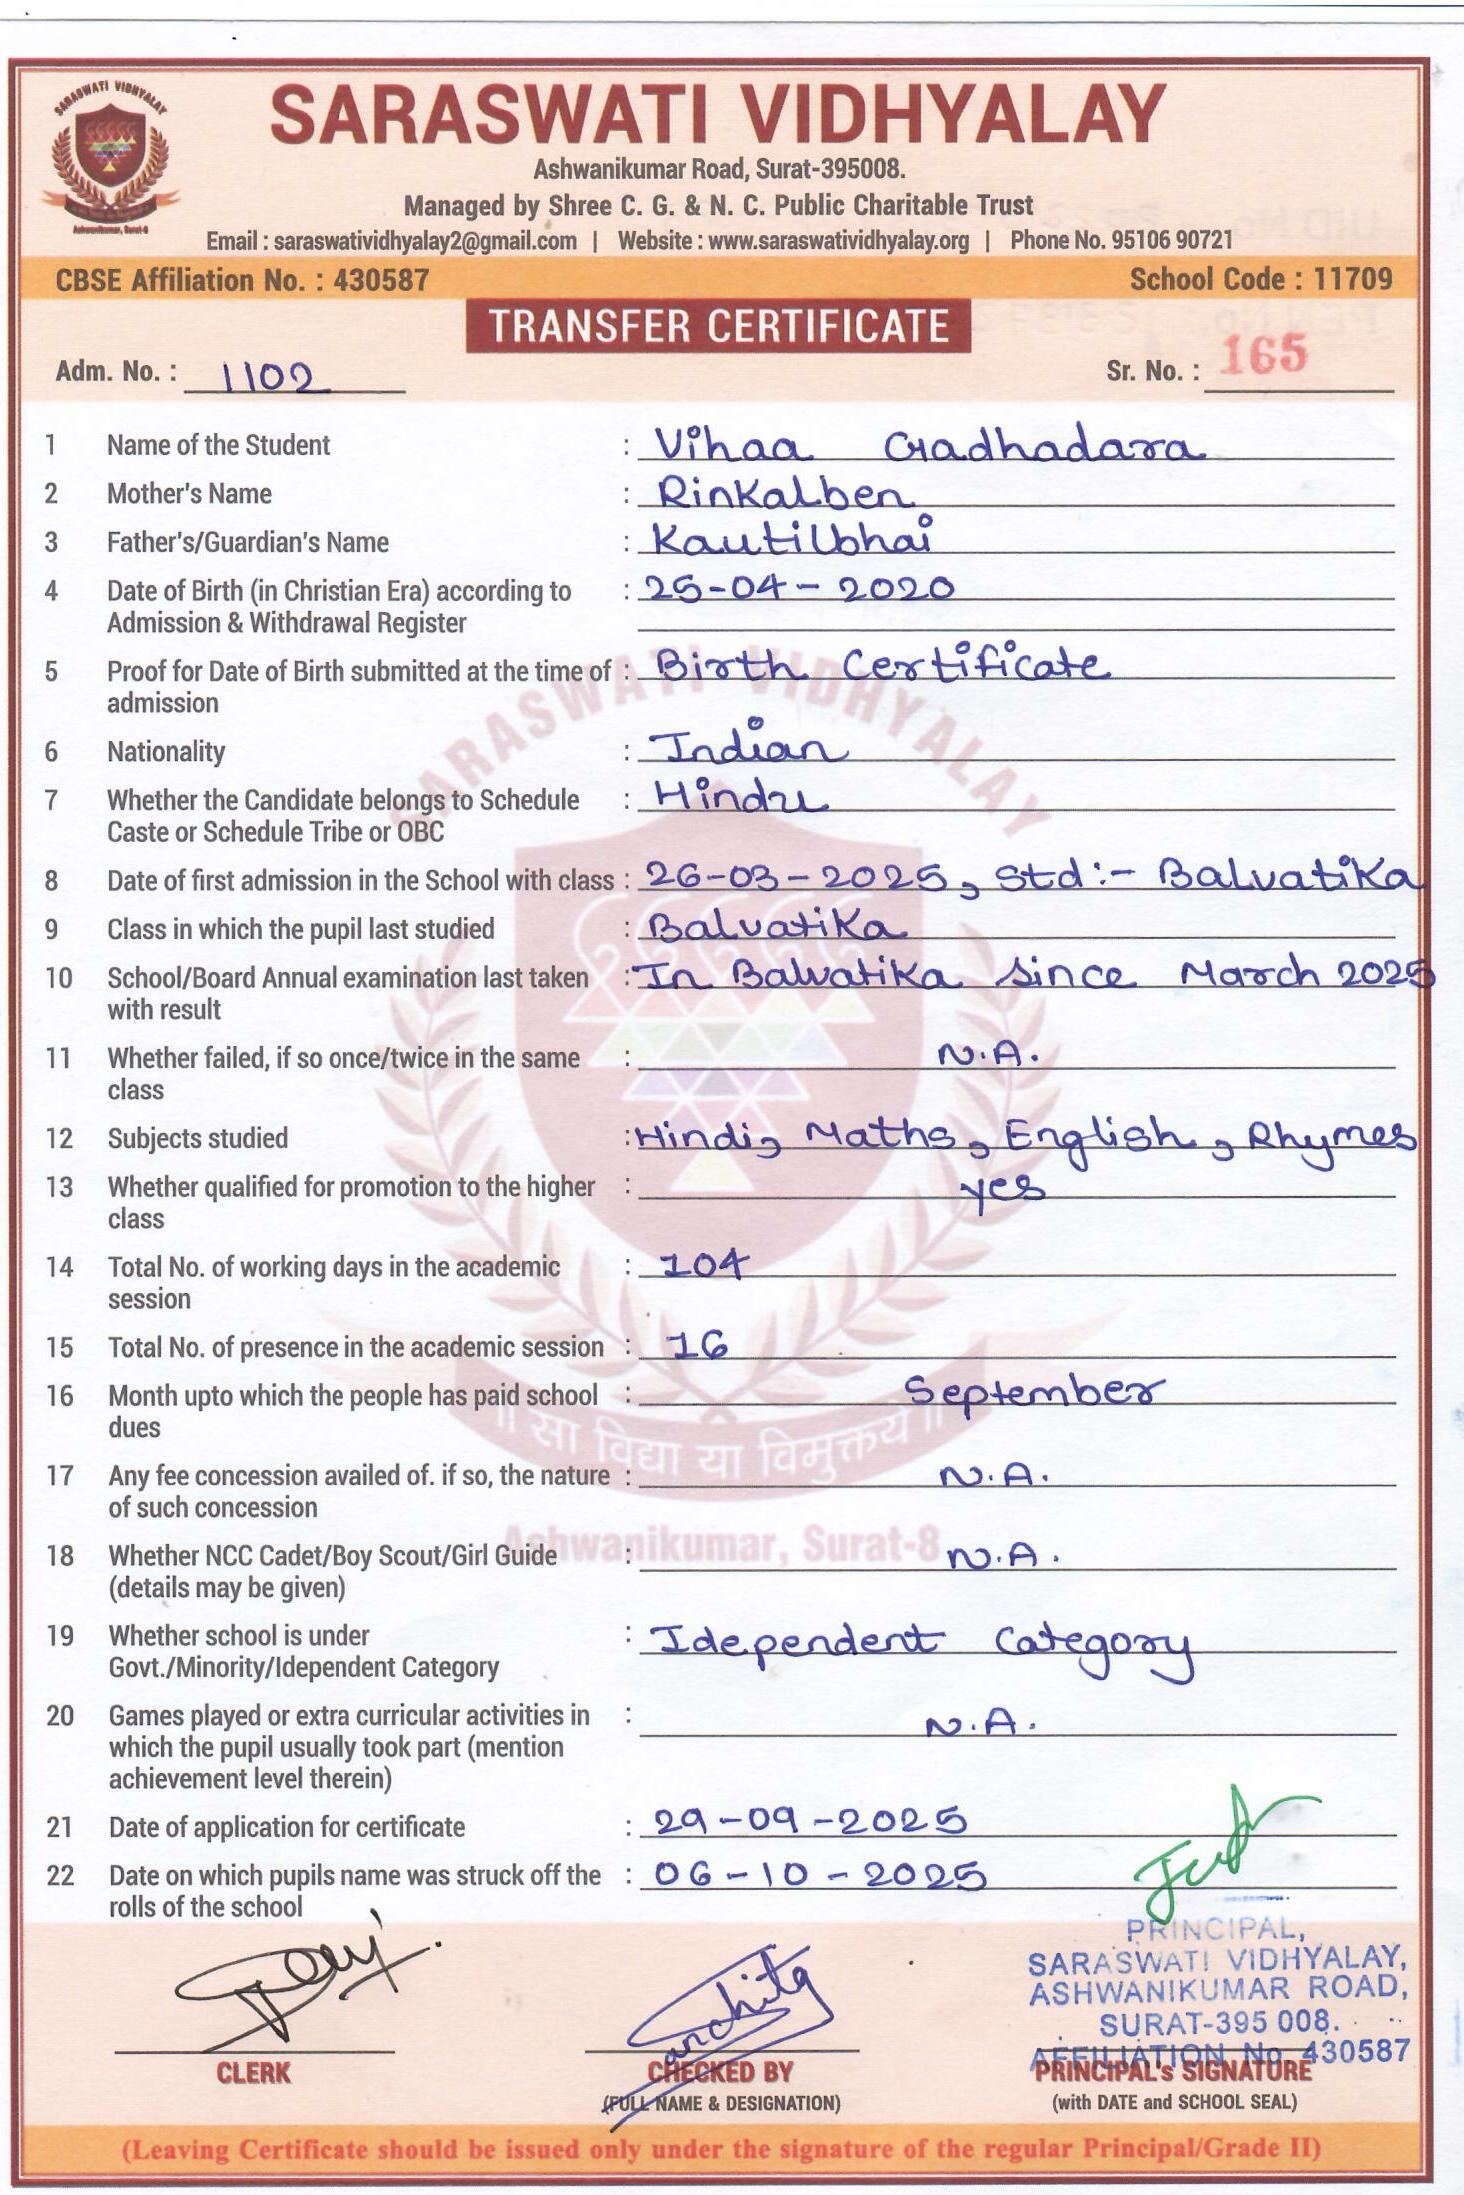 SARASWATI VIDHYALAY
Ashwanikumar, Surat-8
SARASWATI VIDHYALAY
Ashwanikumar Road, Surat-395008.
Managed by Shree C. G. & N. C. Public Charitable Trust
Email : saraswatividhyalay2@gmail.com | Website : www.saraswatividhyalay.org | Phone No. 95106 90721
CBSE Affiliation No. : 430587 School Code : 11709
TRANSFER CERTIFICATE
Adm. No. : 1102 Sr. No. : 165
1 Name of the Student : Vihaa Gadhadara
2 Mother's Name : Rinkalben
3 Father's/Guardian's Name : Kautilbhai
4 Date of Birth (in Christian Era) according to : 25-04-2020
Admission & Withdrawal Register
5 Proof for Date of Birth submitted at the time of : Birth Certificate
admission
6 Nationality : Indian
7 Whether the Candidate belongs to Schedule : Hindu
Caste or Schedule Tribe or OBC
8 Date of first admission in the School with class : 26-03-2025, Std:- Balvatika
9 Class in which the pupil last studied : Balvatika
10 School/Board Annual examination last taken : In Balvatika since March 2025
with result
11 Whether failed, if so once/twice in the same : N.A.
class
12 Subjects studied : Hindi, Maths, English, Rhymes
13 Whether qualified for promotion to the higher : yes
class
14 Total No. of working days in the academic : 104
session
15 Total No. of presence in the academic session : 16
16 Month upto which the people has paid school : September
dues
17 Any fee concession availed of. if so, the nature : N.A.
of such concession
18 Whether NCC Cadet/Boy Scout/Girl Guide : N.A.
(details may be given)
19 Whether school is under : Idependent Category
Govt./Minority/Idependent Category
20 Games played or extra curricular activities in : N.A.
which the pupil usually took part (mention
achievement level therein)
21 Date of application for certificate : 29-09-2025
22 Date on which pupils name was struck off the : 06-10-2025
rolls of the school
SARASWATI VIDHYALAY
॥ सा विद्या या विमुक्तय ॥
Ashwanikumar, Surat-8
PRINCIPAL,
SARASWATI VIDHYALAY,
ASHWANIKUMAR ROAD,
SURAT-395 008.
AFFILIATION No 430587
architg
CLERK CHECKED BY PRINCIPAL's SIGNATURE
(FULL NAME & DESIGNATION) (with DATE and SCHOOL SEAL)
(Leaving Certificate should be issued only under the signature of the regular Principal/Grade II)